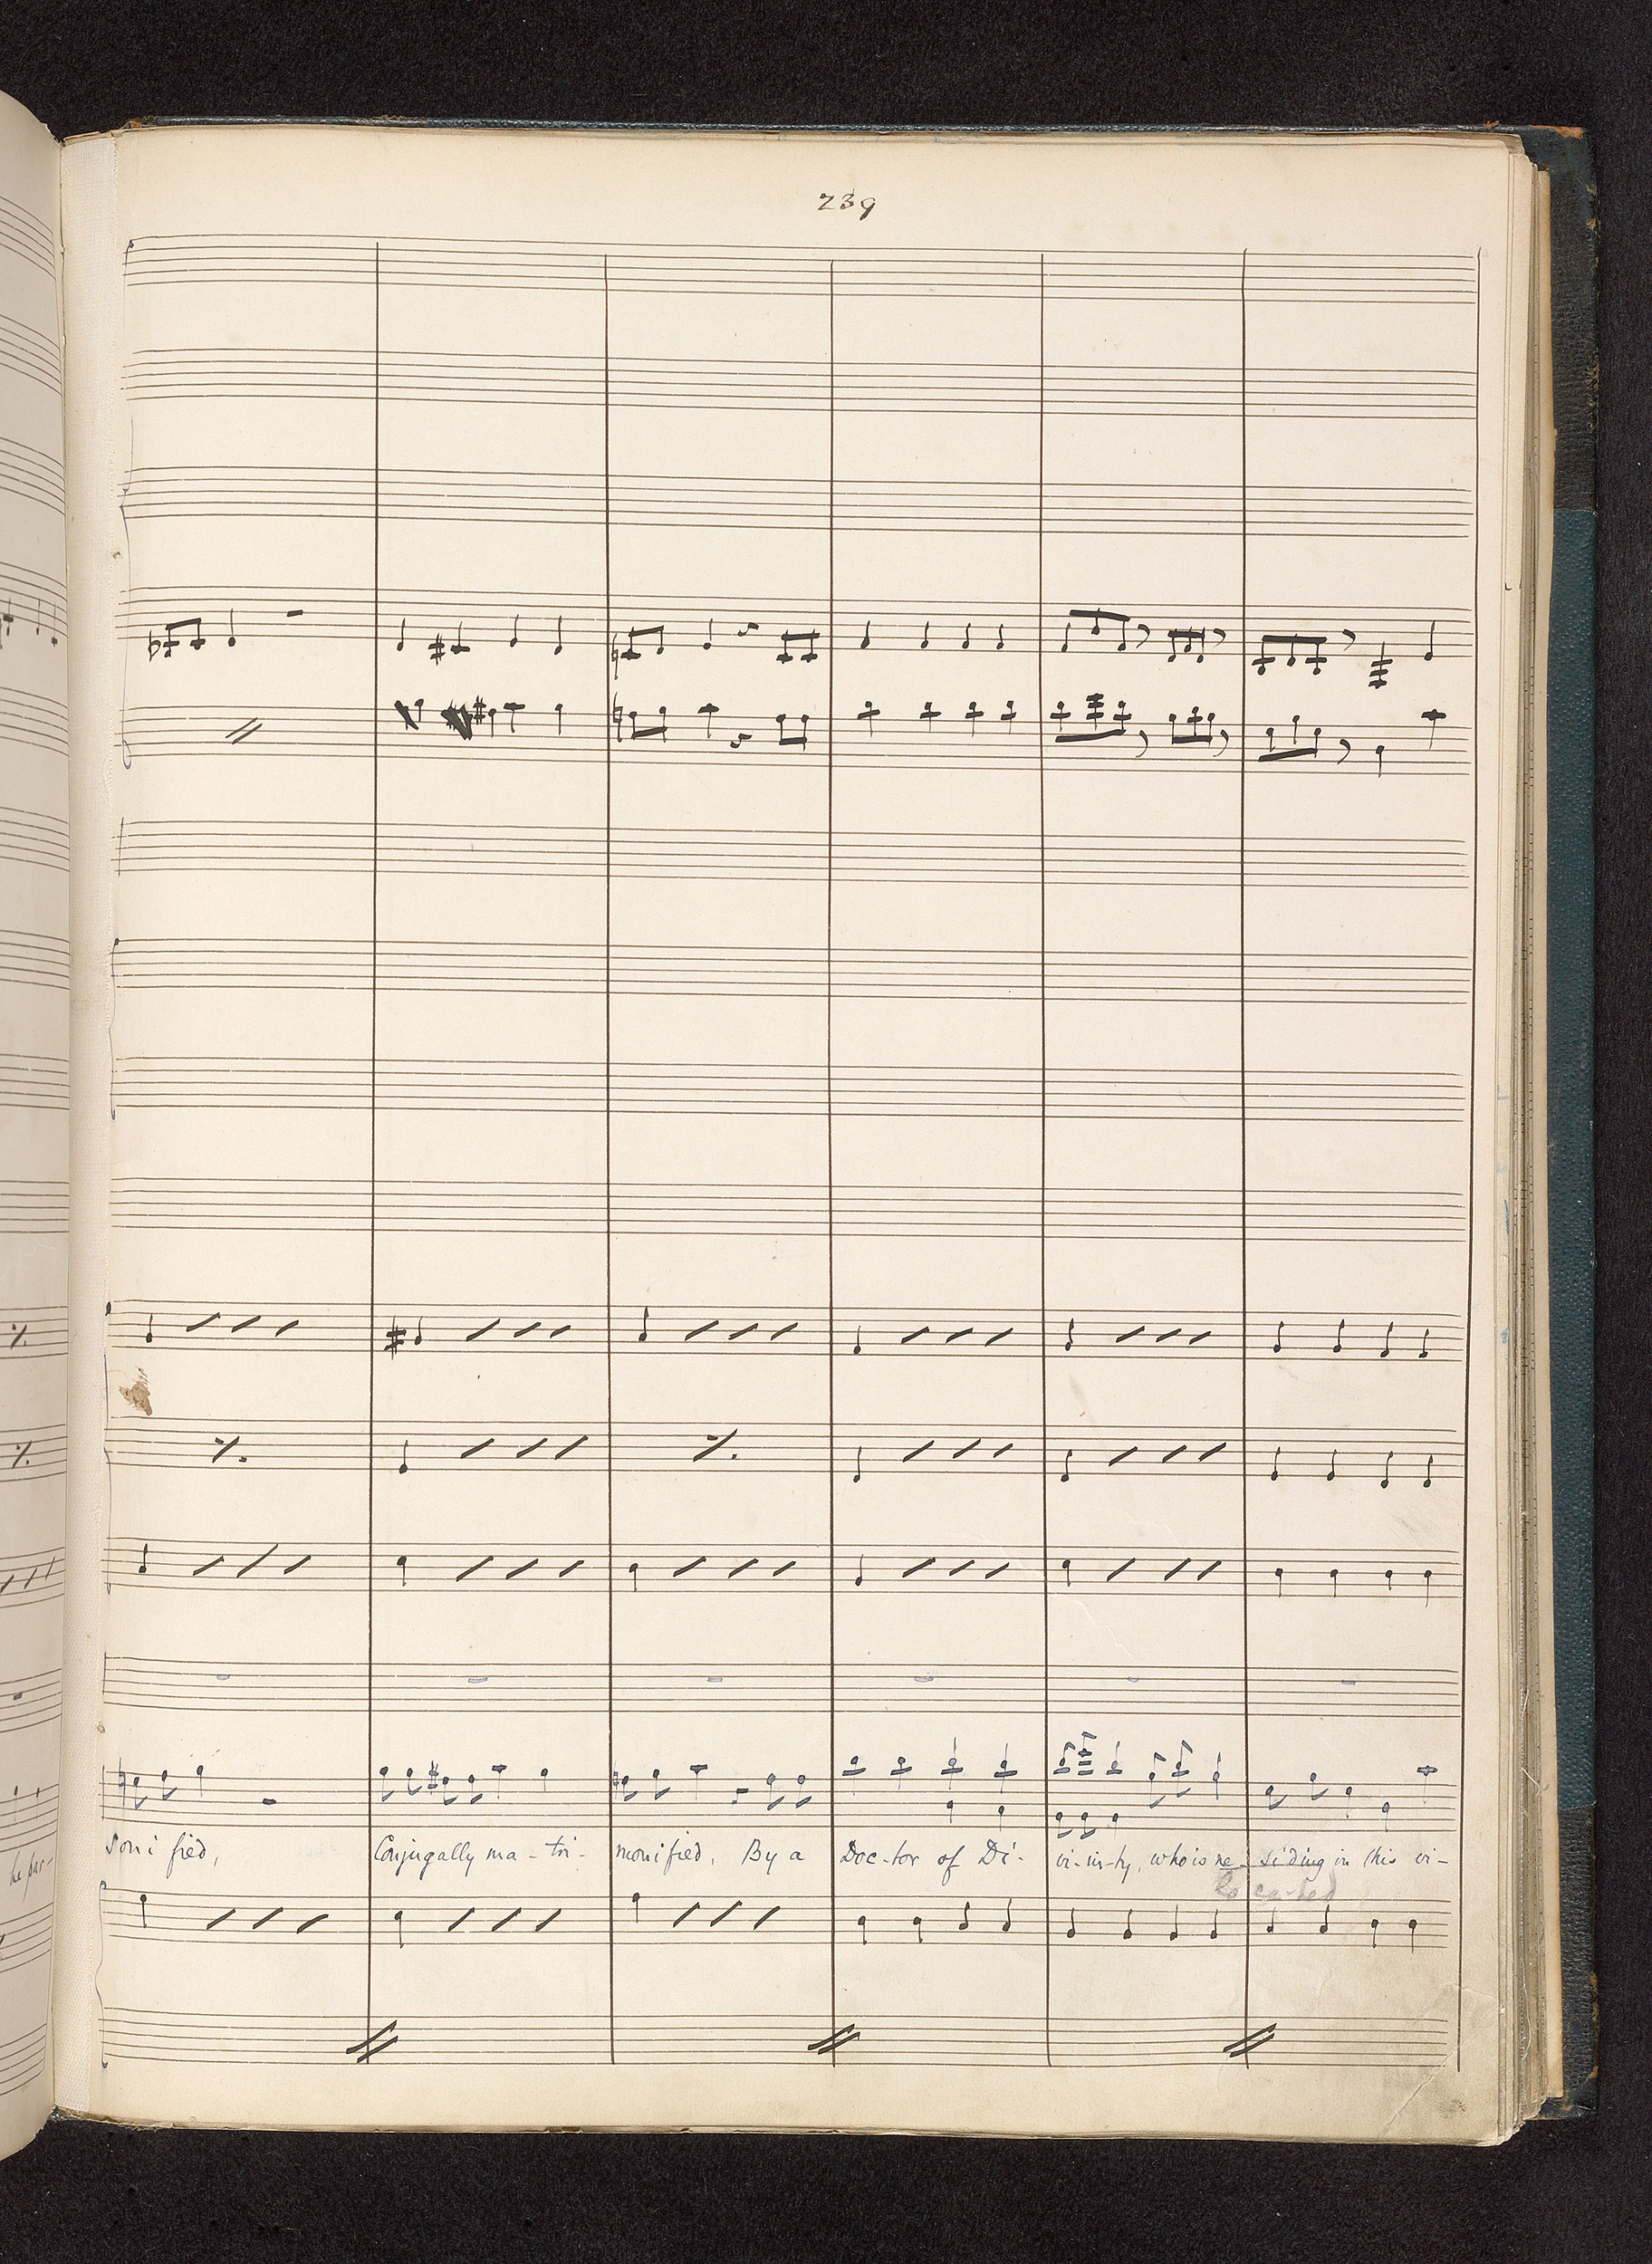 239
he par-
soni fied, Conjugally ma - tri- monified, By a Doc-tor of Di- vi-ni-ty, who is re-siding in this vi-
located